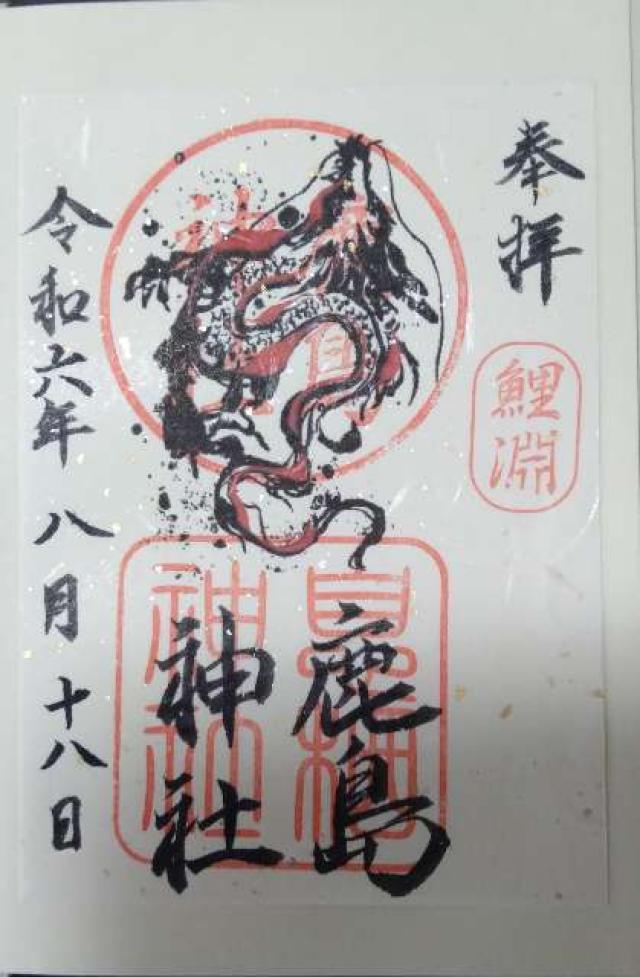 奉拝
鯉淵
鹿島
神社
令和六年八月十八日